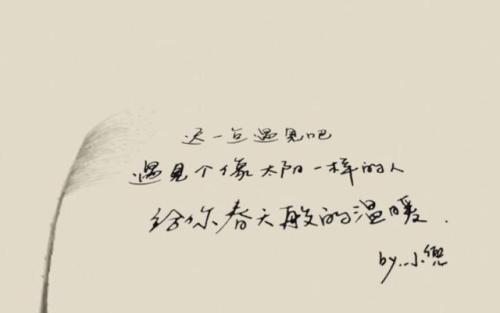 迟一点遇见吧
遇见个像太阳一样的人
给你春天般的温暖.
by.小